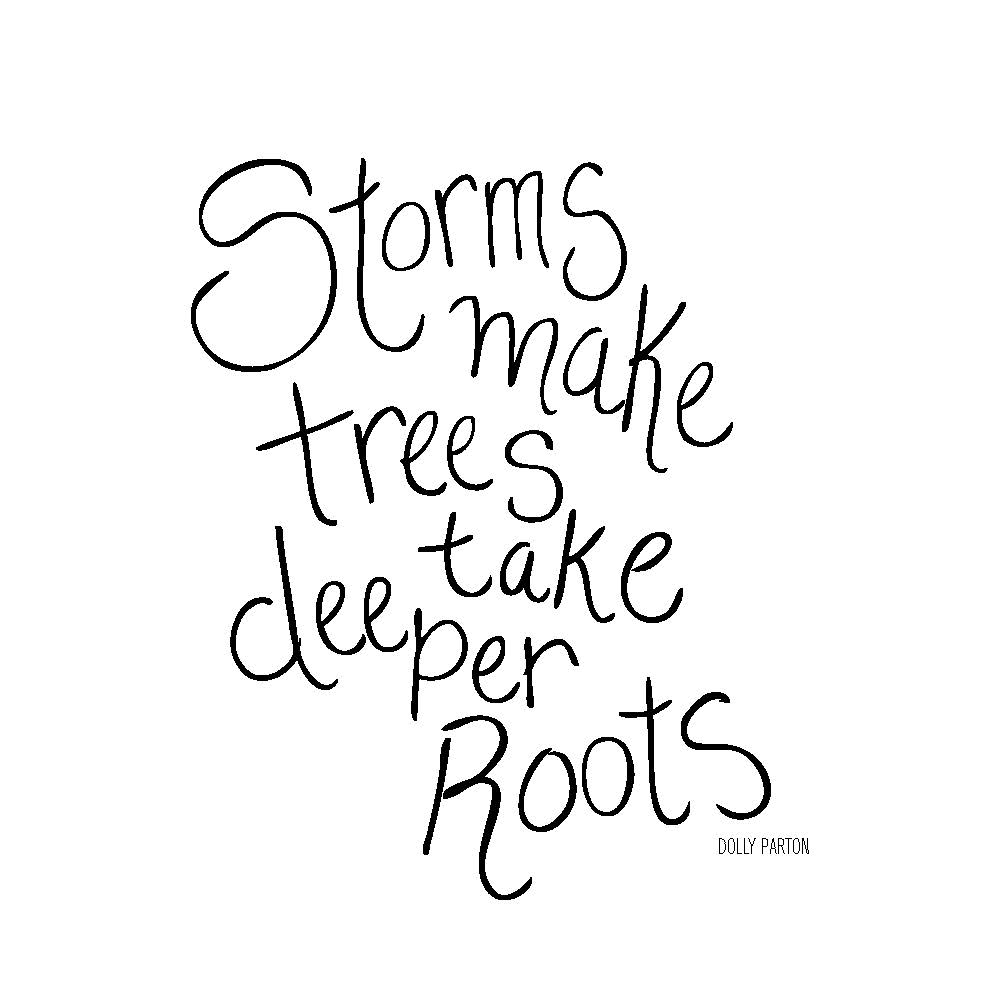 Storms
make
trees
take
deeper
Roots
DOLLY PARTON